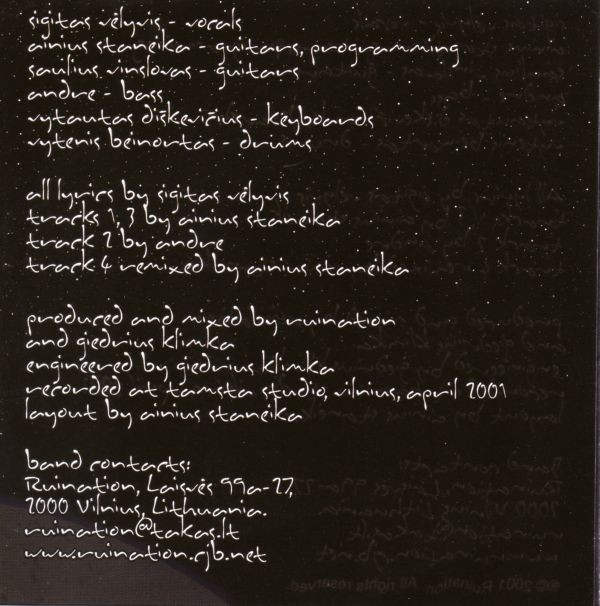 sigitas vėlyvis - vocals
ainius staneika - guitars, programming
saulius vinslovas - guitars
andre - bass
vytautas diškevičius - keyboards
vytenis beinortas - drums
all lyrics by sigitas vėlyvis
tracks 1, 3 by ainius staneika
track 2 by andre
track 4 remixed by ainius staneika
produced and mixed by ruination
and giedrius klimka
engineered by giedrius klimka
recorded at tamsta studio, vilnius, april 2001
layout by ainius staneika
band contacts:
Ruination, Laisvės 99a-27,
2000 Vilnius, Lithuania.
ruination@takas.lt
www.ruination.cjb.net
© 2001 Ruination. All rights reserved.